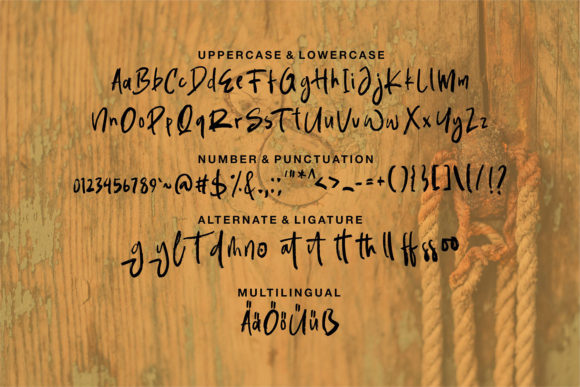 UPPERCASE & LOWERCASE
AaBbCcDdEeFfGgHhIiJjKkLlMm
NnOoPpQqRrSsTtUuVvWwXxYyZz
NUMBER & PUNCTUATION
0123456789`~@#$%&.,:;'"*^<>_-=+(){}[]\|/!?
ALTERNATE & LIGATURE
g y l t d m n o at it tt th ll ff ss oo
MULTILINGUAL
ÄäÖöÜüß